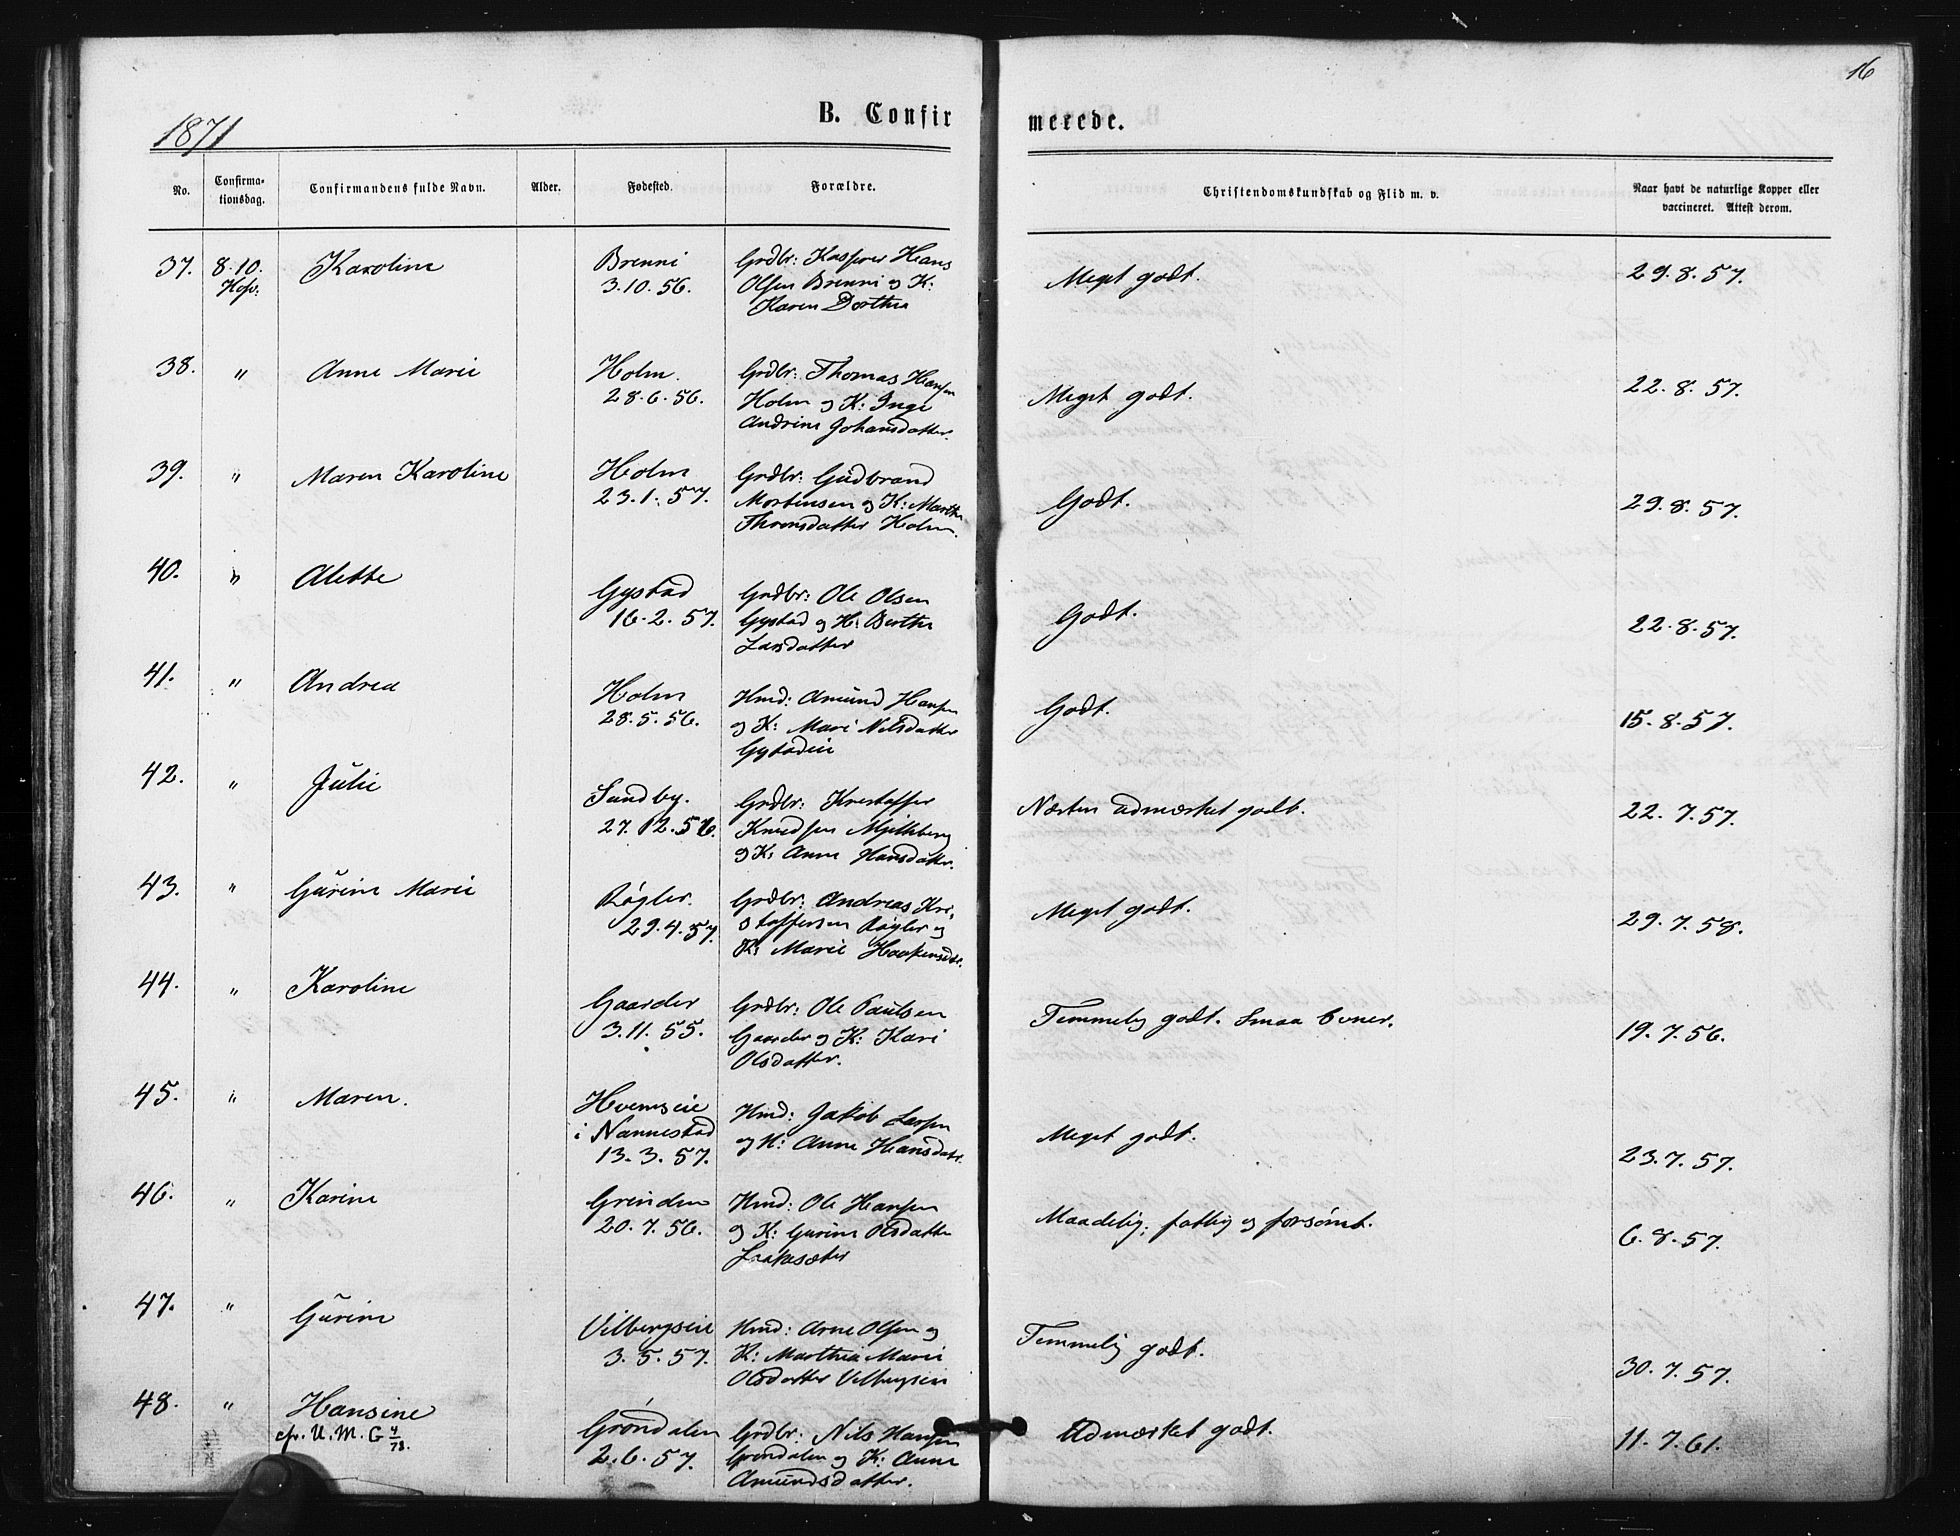 16
1871
B. Confirmerede.
No.
Confirma-
tionsdag.
Confirmandens fulde Navn.
Alder.
Fødested.
Forældre.
Christendomskundskab og Flid m. v.
Naar havt de naturlige Kopper eller
vaccineret. Attest derom.
37. 8.10. Karoline Brenni Grdbr: Kasper Hans Meget godt. 29.8.57.
3.10.56. Olsen Brenni og K:
Karen Dorthea
38. " Anne Marie Holm. Grdbr: Thomas Hansen Meget godt. 22.8.57.
28.6.56. Holm og K: Inge
Andrine Johansdatter.
39. " Maren Karoline Holm Grdbr: Gudbrand Godt. 29.8.57.
23.1.57. Mortensen og K: Marthe
Thronsdatter Holm.
40. " Alette Gystad Grdbr: Ole Olsen Godt. 22.8.57.
16.2.57. Gystad og K: Berthe
Larsdatter
41. " Andrea Holm Hmd: Amund Hansen Godt. 15.8.57.
28.5.56. og K: Mari Nilsdatter
Gystadeie
42. " Julie Sundby. Grdbr: Kristoffer Næsten udmærket godt. 22.7.57.
27.12.56. Knudsen
og K: Anne Hansdatter.
43. " Gurine Marie Røgler. Grdbr: Andreas Kri- Meget godt. 29.7.58.
29.4.57. stoffersen Røgler og
K: Marie Haakensdtr.
44. " Karoline Gaarder Grdbr: Ole Paulsen Temmelig godt. Smaa Evner. 19.7.56.
3.11.55. Gaarder og K: Kari
Olsdatter.
45. " Maren. Hvemseie Hmd: Jakob Larsen Meget godt. 23.7.57.
i Nannestad og K: Anne Hansdatr.
13.3.57.
46. " Karine Grinden Hmd: Ole Hansen Maadelig; fattig og forsømt. 6.8.57.
20.7.56. og K: Gurine Olsdatter
47. " Gurine Vilbergseie Hmd: Arne Olsen og Temmelig godt. 30.7.57.
3.5.57. K: Marthea Marie
Olsdatter Vilbergseie
48. " Hansine Gröndalen Grdbr: Nils Hansen Udmærket godt. 11.7.61.
cfr. U.M.G 4/78. 2.6.57. Gröndalen og K: Anne
Amundsdatter.